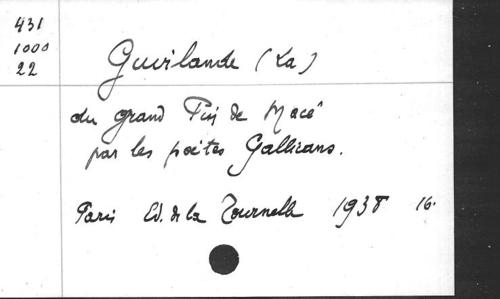 431
1000
22
Guirlande (La)
du grand Puy de Macé
par les poètes Gallicans.
Paris Ed. de la Tournelle 1938 16.